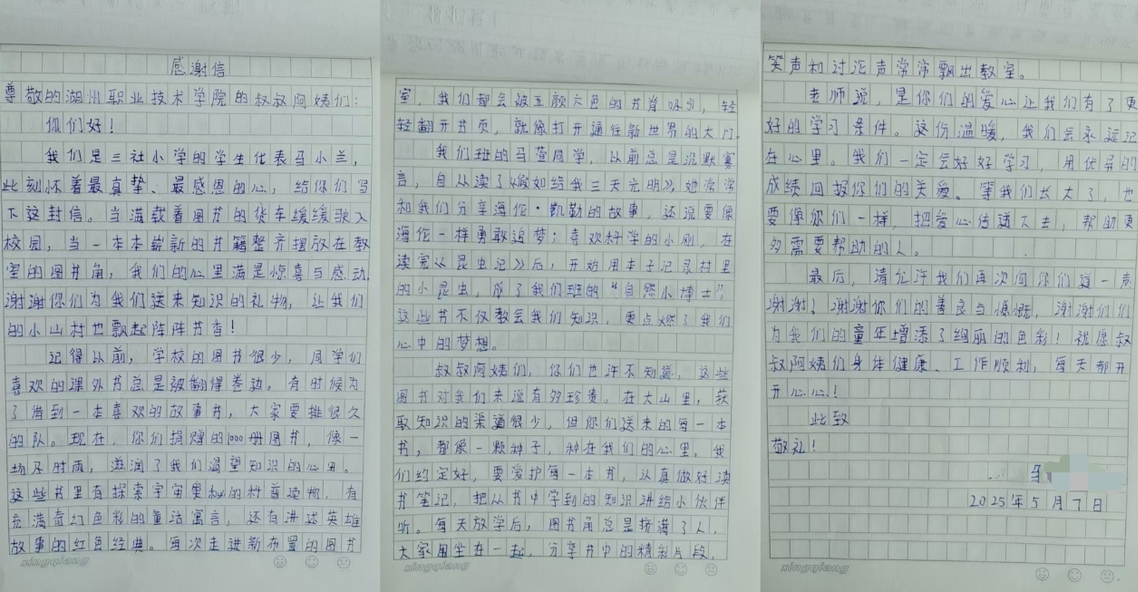 感谢信
尊敬的湖州职业技术学院的叔叔阿姨们:
你们好!
我们是三社小学的学生代表马小兰,
此刻怀着最真挚、最感恩的心,给你们写
下这封信。当满载着图书的货车缓缓驶入
校园,当一本本崭新的书籍整齐摆放在教
室的图书角,我们的心里满是惊喜与感动,
谢谢你们为我们送来知识的礼物,让我们
的小山村也飘起阵阵书香!
记得以前,学校的图书很少,同学们
喜欢的课外书总是被翻得卷边。有时候为
了借到一本喜欢的故事书,大家要排很久
的队。现在,你们捐赠的1000册图书,像一
场及时雨,滋润了我们渴望知识的心里。
这些书里有探索宇宙奥秘的科普读物,有
充满奇幻色彩的童话寓言,还有讲述英雄
故事的红色经典。每次走进新布置的图书
室,我们都会被五颜六色的书脊吸引,轻
轻翻开书页,就像打开通往新世界的大门。
我们班的马萱同学,以前总是沉默寡
言,自从读了《假如给我三天光明》,她常常
和我们分享海伦·凯勒的故事,还说要像
海伦一样勇敢追梦;喜欢科学的小刚,在
读完《昆虫记》后,开始用本子记录村里
的小昆虫,成了我们班的“自然小博士”,
这些书不仅教会我们知识,更点燃了我们
心中的梦想。
叔叔阿姨们,你们也许不知道,这些
图书对我们来说有多珍贵。在大山里,获
取知识的渠道很少,但你们送来的每一本
书,都像一颗种子,种在我们的心里。我
们约定好,要爱护每一本书,认真做好读
书笔记,把从书中学到的知识讲给小伙伴
听。每天放学后,图书角总是挤满了人,
大家围坐在一起,分享书中的精彩片段,
笑声和讨论声常常飘出教室。
老师说,是你们的爱心让我们有了更
好的学习条件。这份温暖,我们会永远记
在心里。我们一定会好好学习,用优异的
成绩回报你们的关爱。等我们长大了,也
要像你们一样,把爱心传递下去,帮助更
多需要帮助的人。
最后,请允许我们再次向你们道一声
谢谢!谢谢你们的善良与慷慨,谢谢们们
为我们的童年增添了绚丽的色彩!祝愿叔
叔阿姨们身体健康、工作顺利,每天都开
开心心!
此致
敬礼!
2025年5月7日
xingqiang
xingqiang
xingqiang